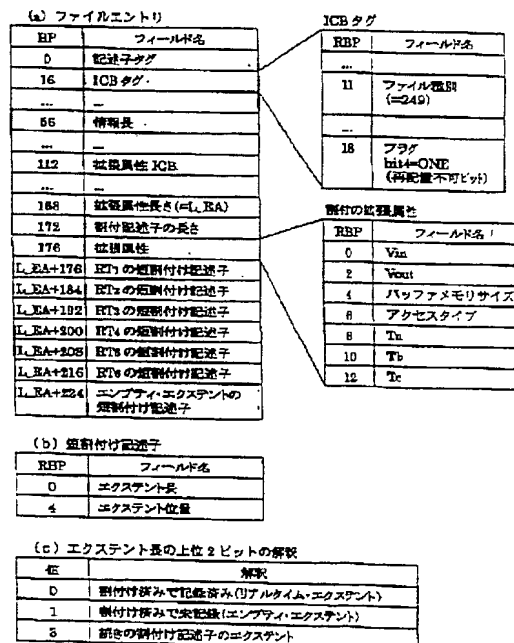 (a) ファイルエントリ
BP フィールド名
0 記述子タグ
16 ICBタグ
... ...
56 情報長
... ...
112 拡張属性ICB
... ...
168 拡張属性長さ(=L_EA)
172 割付記述子の長さ
176 拡張属性
L_EA+176 RT1の短割付け記述子
L_EA+184 RT2の短割付け記述子
L_EA+192 RT3の短割付け記述子
L_EA+200 RT4の短割付け記述子
L_EA+208 の短割付け記述子
L_EA+216 の短割付け記述子
L_EA+224 エンプティ・エクステントの
短割付け記述子
ICBタグ
RBP フィールド名
...
11 ファイル種別
(=249)
...
18 フラグ
bit4=ONE
(再配置不可ビット)
割付の拡張属性
RBP フィールド名
0 Vin
2 Vout
4 バッファメモリサイズ
6 アクセスタイプ
8
10 Tb
12 Tc
(b) 短割付け記述子
RBP フィールド名
0 エクステント長
4 エクステント位置
(c) エクステント長の上位2ビットの解釈
値 解釈
0 割付け済みで記録済み(リアルタイム・エクステント)
1 割付け済みで未記録(エンプティ・エクステント)
3 続きの割付け記述子のエクステント